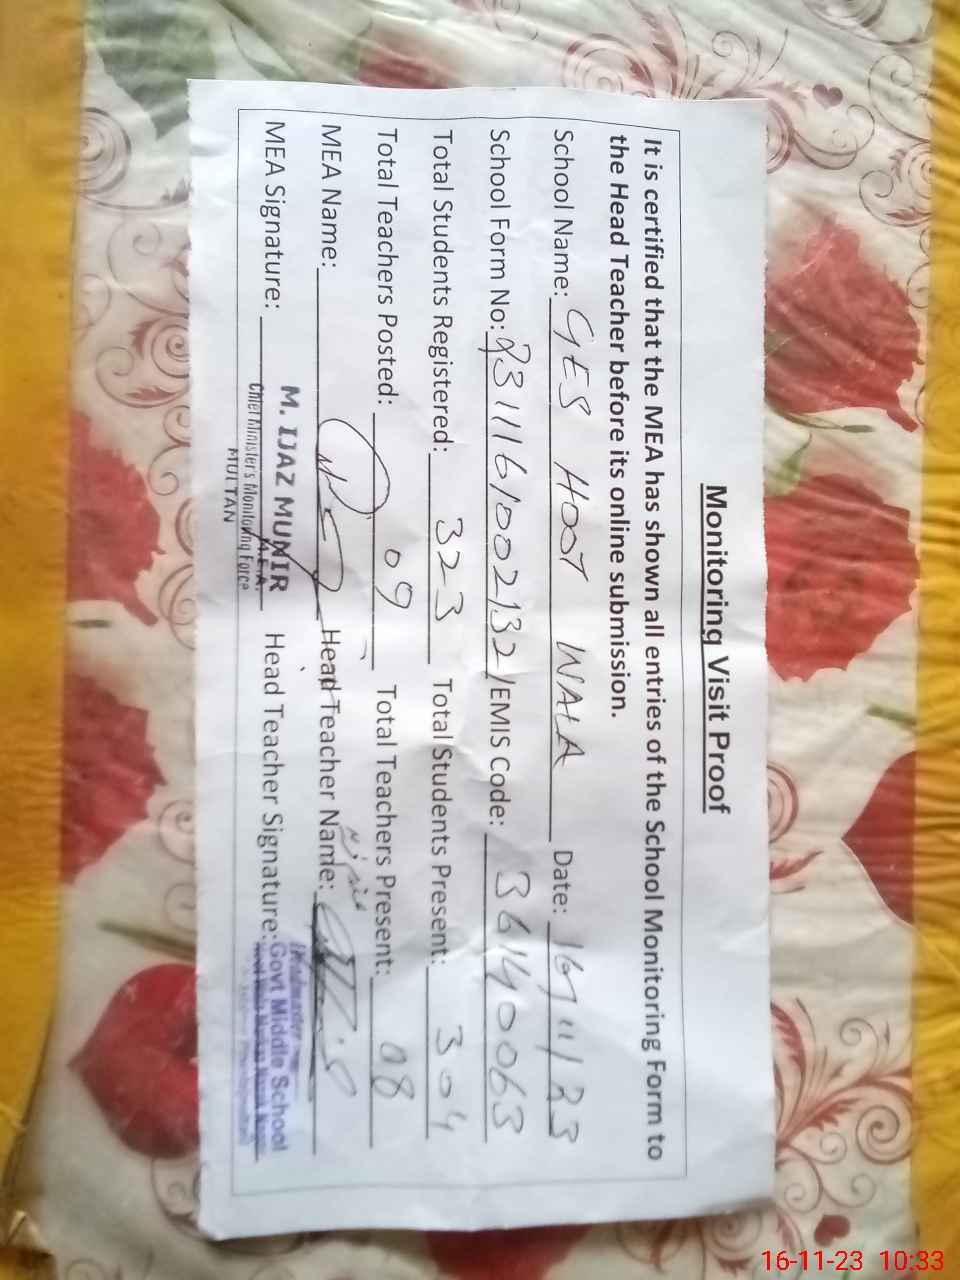 Monitoring Visit Proof
It is certified that the MEA has shown all entries of the School Monitoring Form to
the Head Teacher before its online submission.
School Name: GES HOOT WALA Date: 16/11/23
School Form No: 231116/002132/EMIS Code: 36140063
Total Students Registered: 323 Total Students Present: 304
Total Teachers Posted: 09 Total Teachers Present: 08
MEA Name: Head Teacher Name:
MEA Signature: Head Teacher Signature:
M. IJAZ MUNIR
M.E.A.
Chief Minister's Monitoring Force
MULTAN
Headmaster
Govt Middle School
16-11-23 10:33